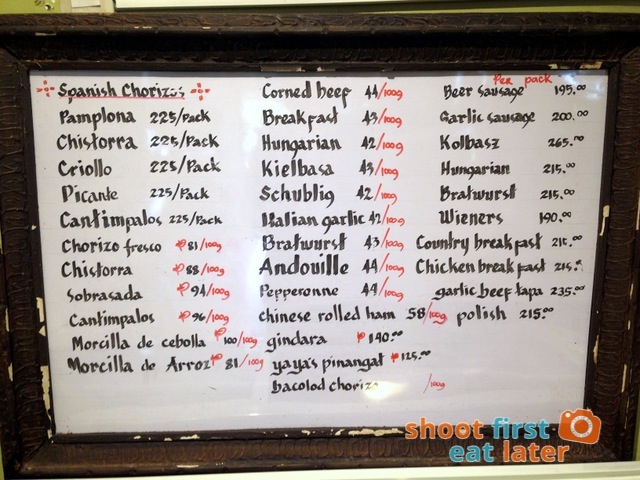 Spanish Chorizos
Pamplona 225/Pack
Chistorra 225/Pack
Criollo 225/Pack
Picante 225/Pack
Cantimpalos 225/Pack
Chorizo fresco ₱81/100g
Chistorra ₱88/100g
Sobrasada ₱94/100g
Cantimpalos ₱96/100g
Morcilla de cebolla ₱100/100g
Morcilla de Arroz ₱81/100g
Corned beef 44/100g
Breakfast 43/100g
Hungarian 42/100g
Kielbasa 43/100g
Schublig 42/100g
Italian garlic 42/100g
Bratwurst 43/100g
Andouille 44/100g
Pepperonne 44/100g
chinese rolled ham 58/100g
gindara ₱140.00
yaya's pinangat ₱125.00
bacolod chorizo /100g
Per pack
Beer sausage 195.00
Garlic sausage 200.00
Kolbasz 265.00
Hungarian 215.00
Bratwurst 215.00
Wieners 190.00
Country breakfast 215.00
Chicken breakfast 215.
garlic beef tapa 235.00
polish 215.00
shoot first
eat later